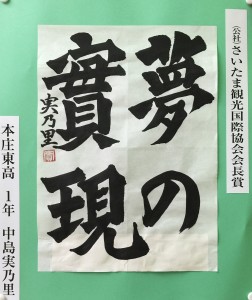 （公社）さいたま観光国際協会会長賞
夢の
實現
実乃里
本庄東高 1年 中島実乃里